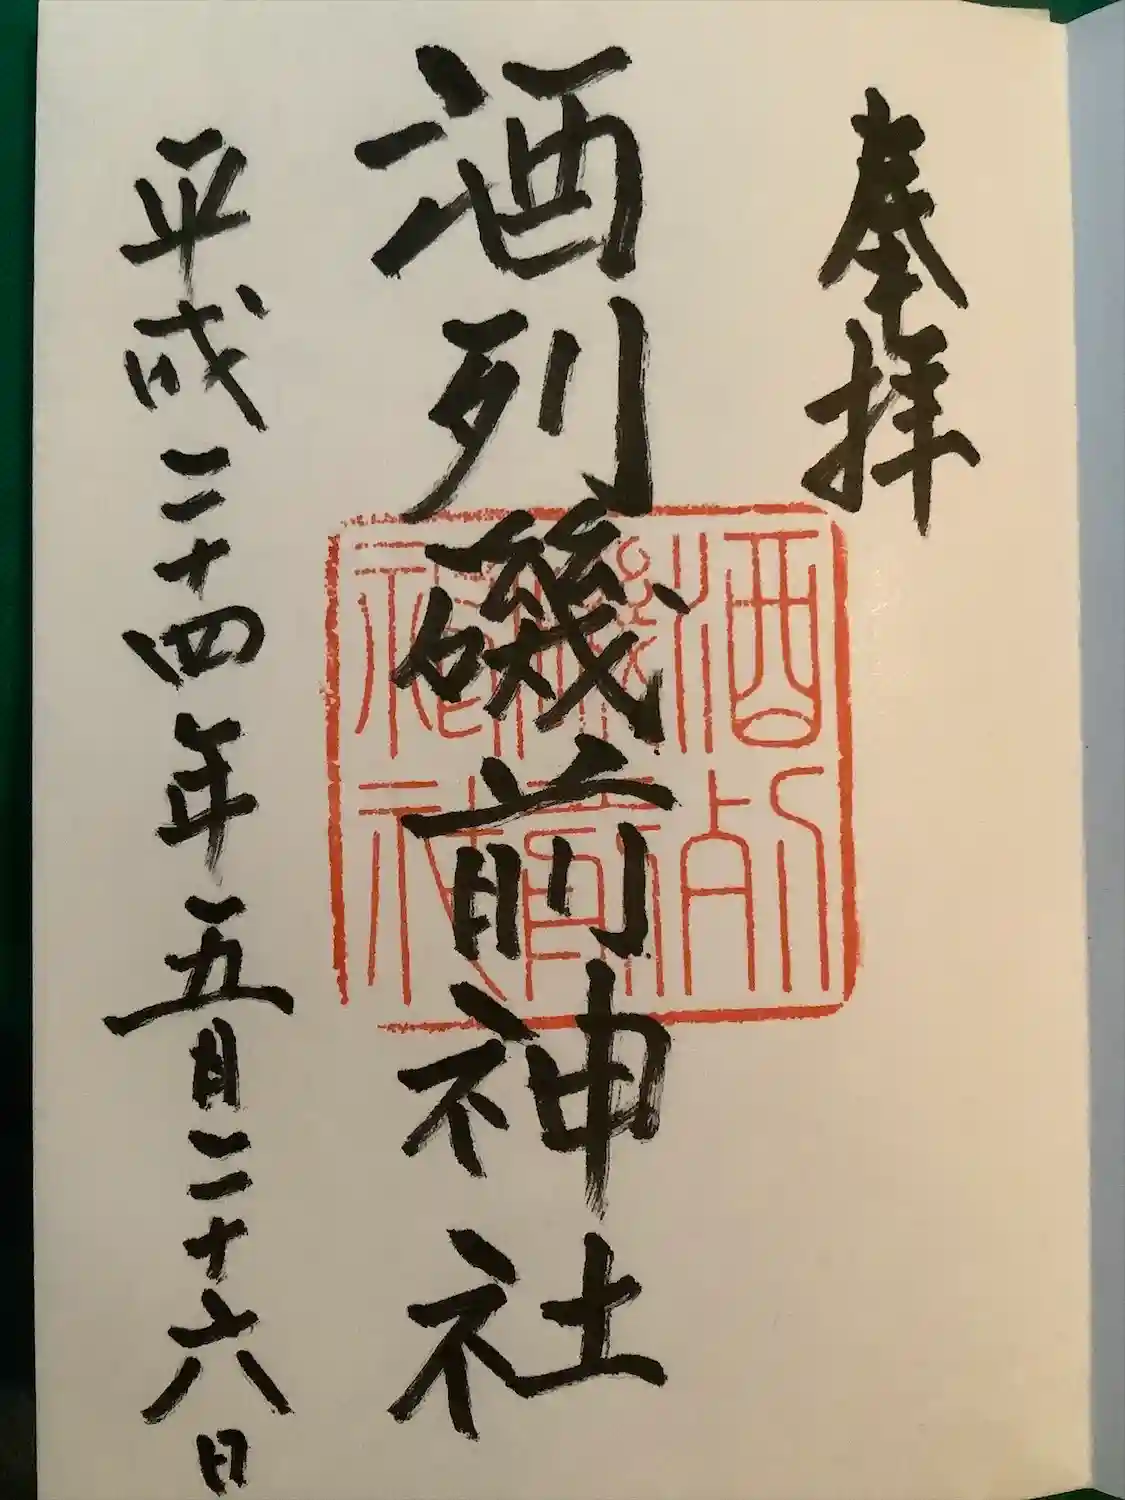 奉拝
酒列磯前神社
平成二十四年五月二十六日
酒列磯前神社